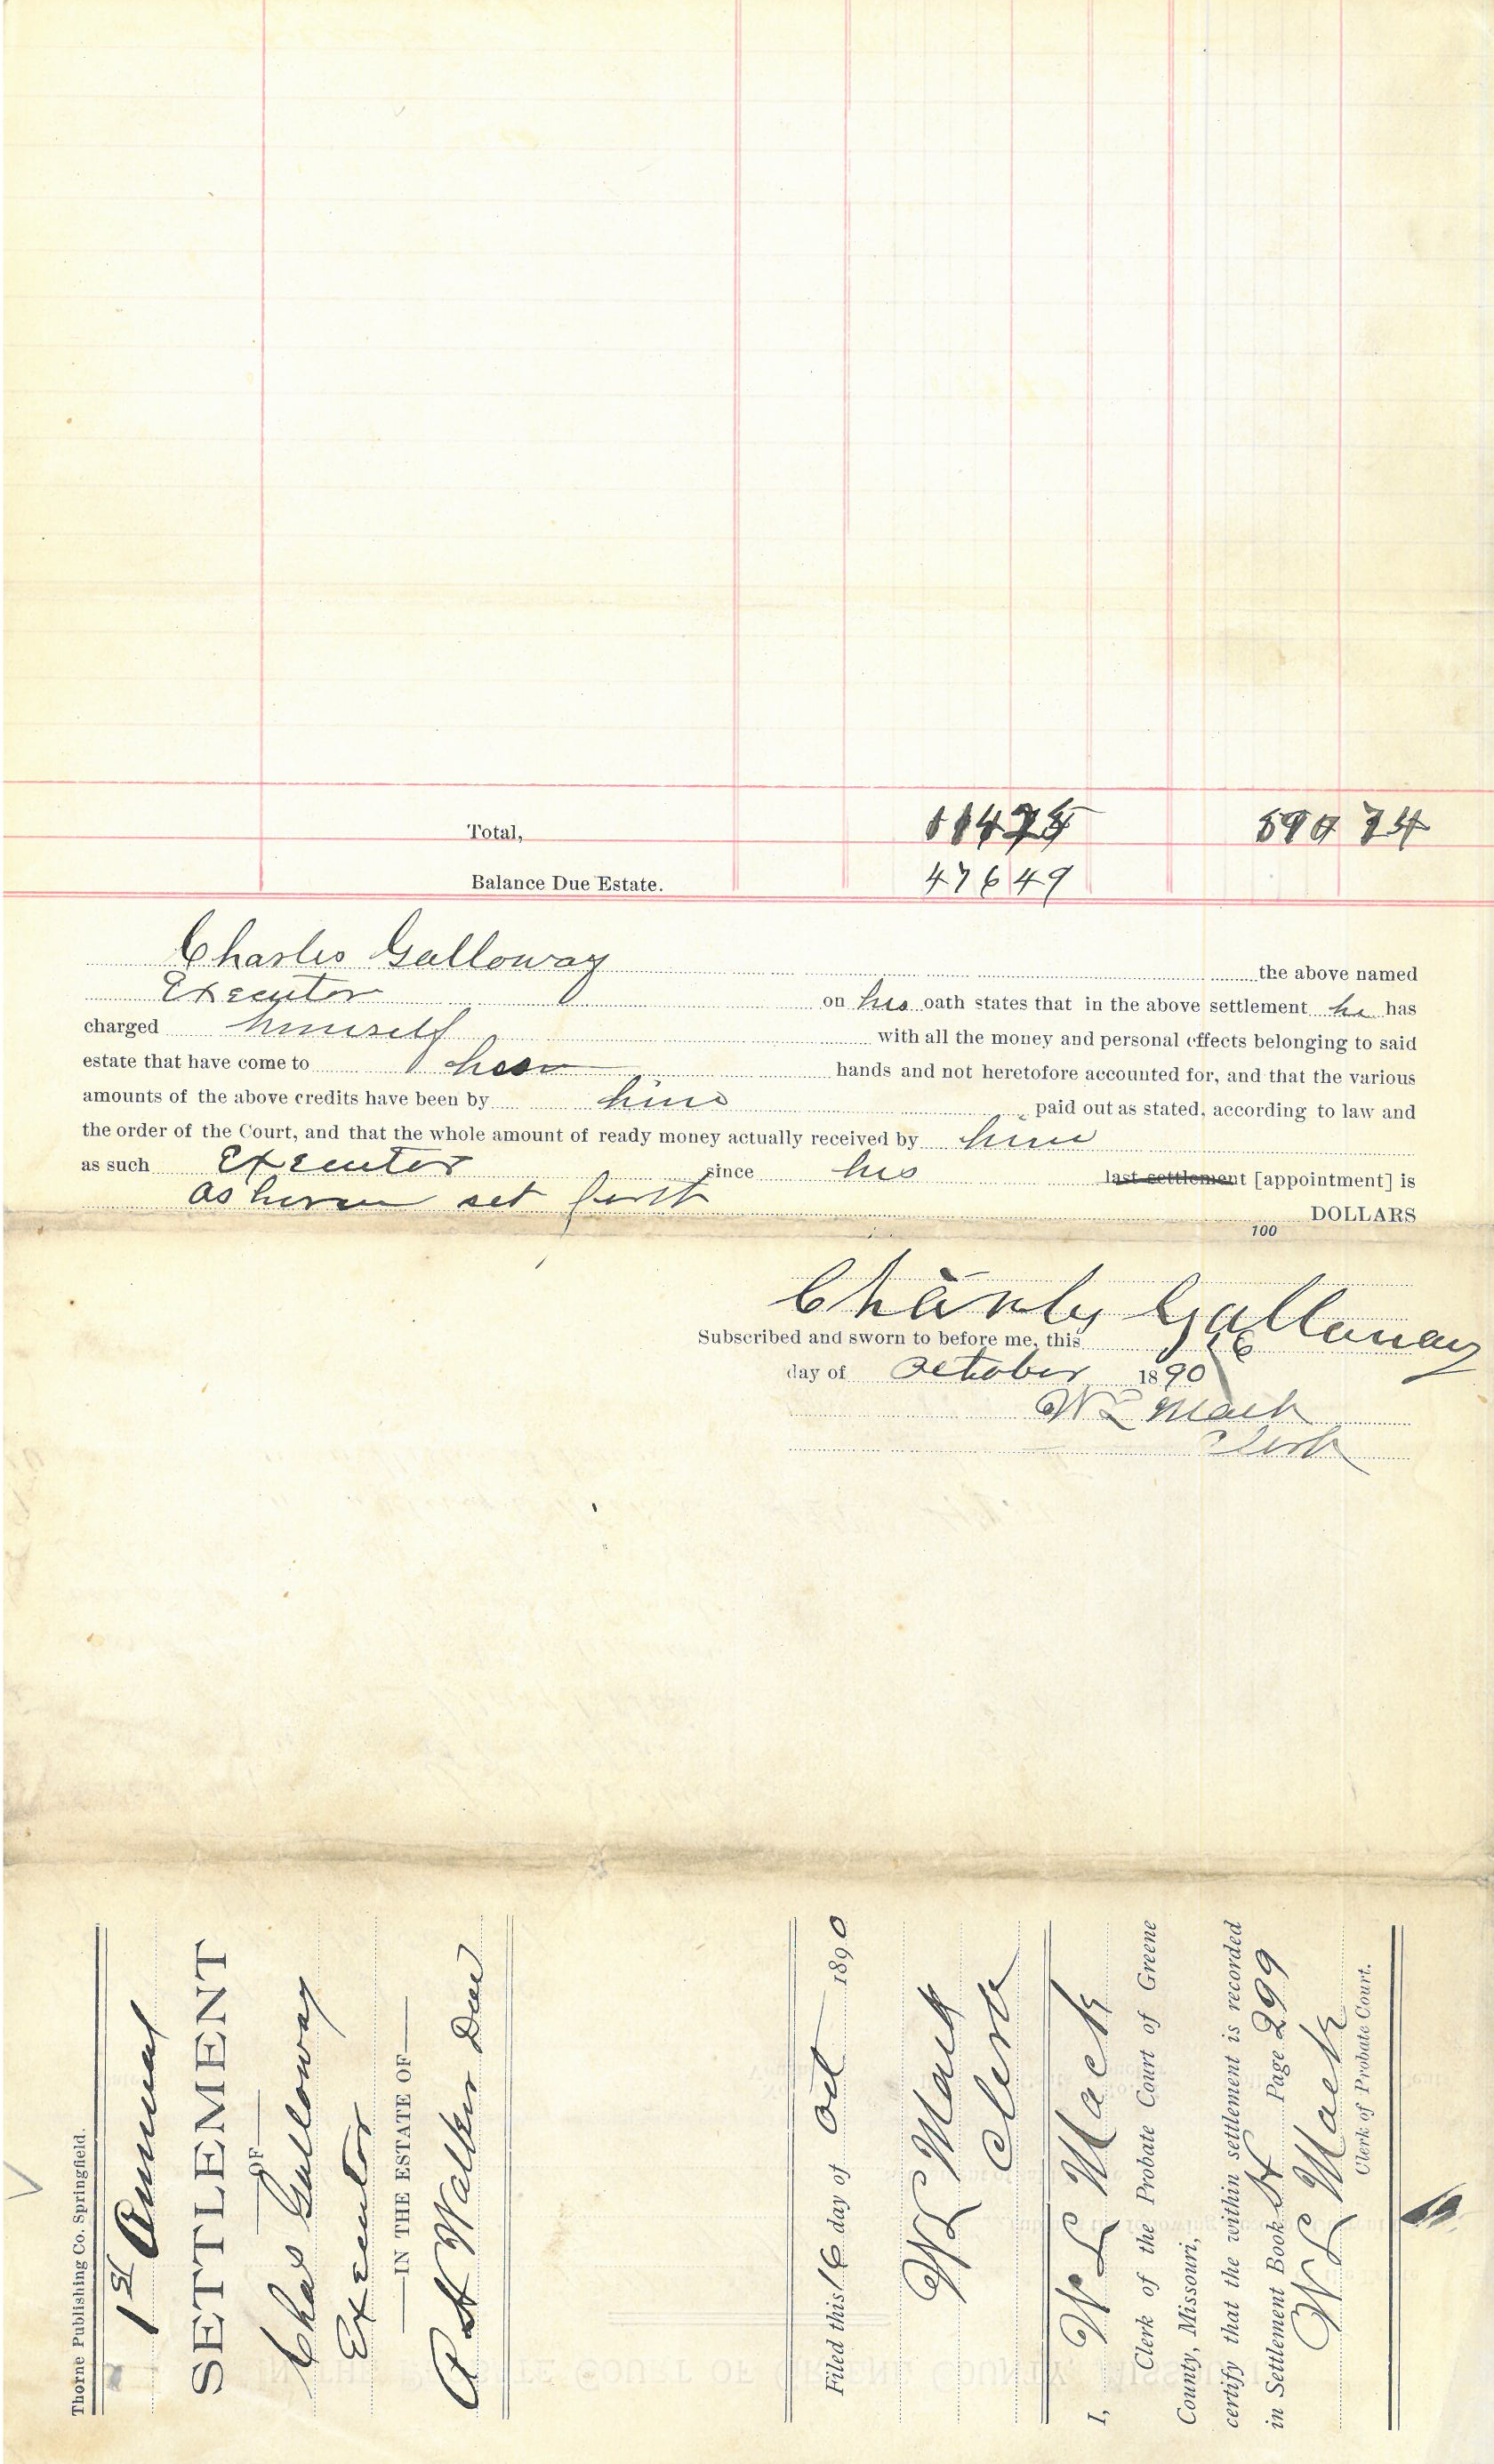 Total, 114 25 590 74
Balance Due Estate. 476 49
Charles Galloway the above named
Executor on his oath states that in the above settlement he has
charged himself with all the money and personal effects belonging to said
estate that have come to his hands and not heretofore accounted for, and that the various
amounts of the above credits have been by him paid out as stated, according to law and
the order of the Court, and that the whole amount of ready money actually received by him
as such Executor since his last settlement [appointment] is
as herein set forth DOLLARS
100
Charly Galloway
Subscribed and sworn to before me, this 16
day of October 1890
W L Mack
Clerk
Thorne Publishing Co. Springfield.
1st Annual
SETTLEMENT
OF
Chas Galloway
Executor
IN THE ESTATE OF
A H Walker Decd
Filed this 16 day of Oct 1890
W L Mack
Clerk
I, W L Mack
Clerk of the Probate Court of Greene
County, Missouri,
certify that the within settlement is recorded
in Settlement Book H Page 299
W L Mack
Clerk of Probate Court.